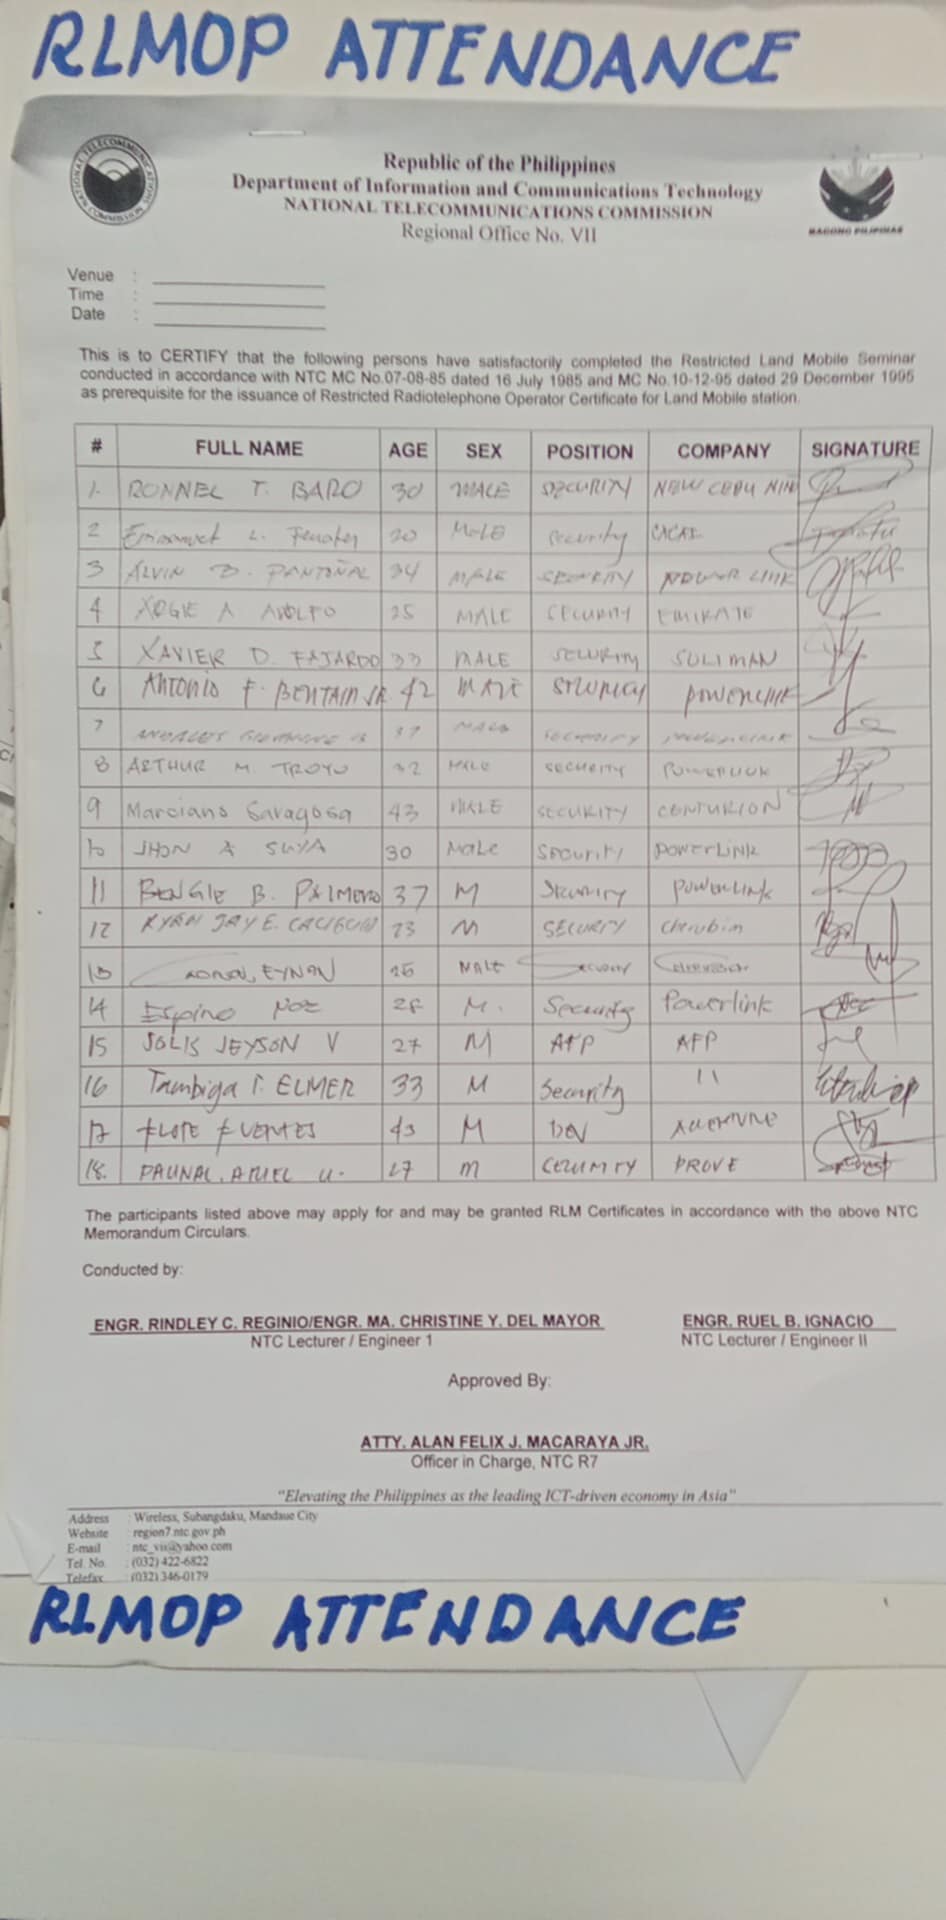 RLMOP ATTENDANCE
NATIONAL TELECOMMUNICATIONS COMMISSION
Republic of the Philippines
Department of Information and Communications Technology
NATIONAL TELECOMMUNICATIONS COMMISSION
Regional Office No. VII
BAGONG PILIPINAS
Venue :
Time :
Date :
This is to CERTIFY that the following persons have satisfactorily completed the Restricted Land Mobile Seminar
conducted in accordance with NTC MC No.07-08-85 dated 16 July 1985 and MC No.10-12-95 dated 29 December 1995
as prerequisite for the issuance of Restricted Radiotelephone Operator Certificate for Land Mobile station.
# FULL NAME AGE SEX POSITION COMPANY SIGNATURE
1. RONNEL T. BARO 30 MALE SECURITY NEW CEBU
2 L. MALE Security
3 ALVIN D. PANTOÑAL 34 MALE SECURITY LINK
4 A 25 MALE SECURITY EMIRATE
5 XAVIER D. FAJARDO 33 MALE SECURITY SULIMAN
6 ANTONIO F. JR 42 MALE POWERLINK
7 37 MALE SECURITY POWERLINK
8 ARTHUR M. TROYO 32 MALE SECURITY POWERLINK
9 Marciano Saragosa 43 MALE SECURITY CENTURION
10 JHON A SUYA 30 MALE Security POWERLINK
11 BENGIE B. 37 M Security POWERLINK
12 RYAN JAY E. 23 M SECURITY cherubim
13 EYNAN MALE Security
14 Espino Noe 28 M. Security Powerlink
15 SOLIS JEYSON V 27 M AFP AFP
16 Tambiga T. ELMER 33 M Security 11
17 43 M
18. 27 M PROVE
The participants listed above may apply for and may be granted RLM Certificates in accordance with the above NTC
Memorandum Circulars.
Conducted by:
ENGR. RINDLEY C. REGINIO/ENGR. MA. CHRISTINE Y. DEL MAYOR ENGR. RUEL B. IGNACIO
NTC Lecturer / Engineer 1 NTC Lecturer / Engineer II
Approved By:
ATTY. ALAN FELIX J. MACARAYA JR.
Officer in Charge, NTC R7
"Elevating the Philippines as the leading ICT-driven economy in Asia"
Address : Wireless, Subangdaku, Mandaue City
Website : region7.ntc.gov.ph
E-mail : ntc_vii@yahoo.com
Tel. No. : (032) 422-6822
Telefax : (032) 346-0179
RLMOP ATTENDANCE